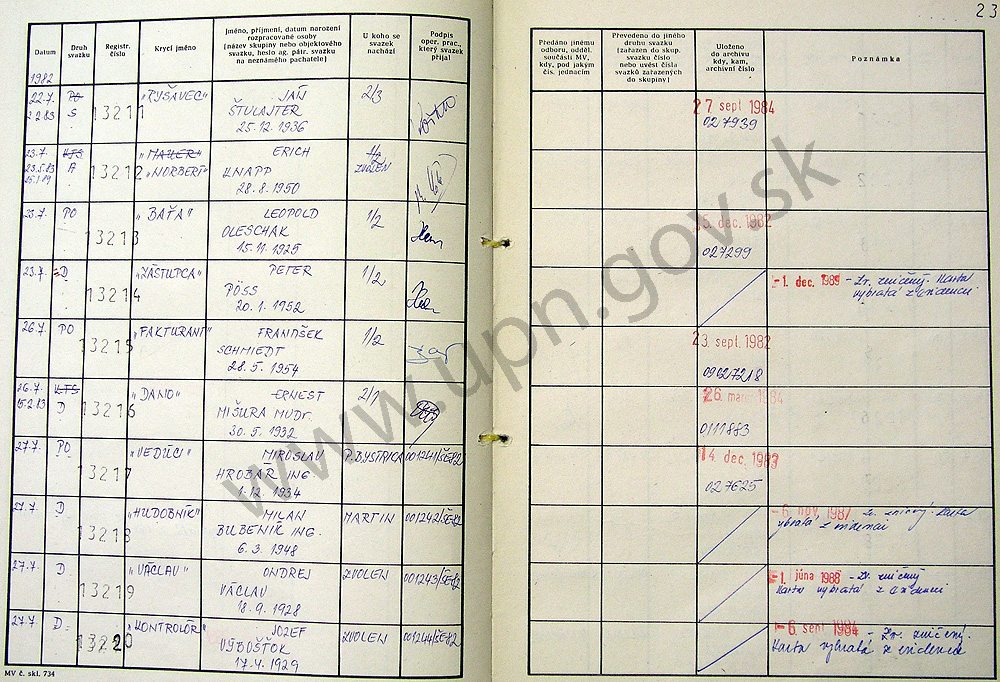 23
Datum
Druh svazku
Registr. číslo
Krycí jméno
Jméno, příjmení, datum narození
rozpracované osoby
(název skupiny nebo objektového
svazku, heslo ag. pátr. svazku
na neznámého pachatele)
U koho se
svazek
nachází
Podpis
oper. prac.,
který svazek
přijal
Předáno jinému
odboru, odděl.
součásti MV,
kdy, pod jakým
čís. jednacím
Převedeno do jiného
druhu svazku
(zařazen do skup.
svazku číslo
nebo uvést čísla
svazků zařazených
do skupiny)
Uloženo
do archivu
kdy, kam,
archivní číslo
Poznámka
1982
22.7. PO 13211 "RYŠAVEC" JÁN 2/3
2.2.83 S ŠTULAJTER
25.12.1936
27 sept 1984
027939
23.7. KTS 13212 "MAUER" ERICH 1/2
23.5.83 A "NORBERT" KNAPP ZVOLEN
28.8.1950
23.7. PO 13213 "BAŤA" LEOPOLD 1/2
OLESCHAK
15.11.1925
15. dec. 1982
027299
23.7. D 13214 "ZÁSTUPCA" PETER 1/2
PÖSS
20.1.1952
-1. dec. 1989 - Zv. zničený. Karta
vybratá z evidencii
26.7. PO 13215 "FAKTURANT" FRANTIŠEK 1/2
SCHMIEDT
28.5.1954
23. sept. 1982
09627218
26.7. KTS 13216 "DANO" ERNEST 2/1
15.2.83 D MIŠURA MUDr.
30.5.1932
26. 1984
0111883
27.7. PO 13217 "VEDÚCI" MIROSLAV P. BYSTRICA 001241/ŠE-82
HROBÁŘ ING.
1.12.1934
14 dec. 1983
027625
27.7. D 13218 "HUDOBNÍK" MILAN MARTIN 001242/ŠE-82
BUBENÍK ING.
6.3.1948
-6. nov. 1987 Zv. zničený. Karta
vybratá z evidencii
27.7. D 13219 "VÁCLAV" ONDREJ ZVOLEN 001243/ŠE-82
VÁCLAV
18.9.1928
-1. júna 1988 - Zv. zničený
Karta vybratá z evidencii
27.7 D 13220 "KONTROLÓR" JOZEF ZVOLEN 001244/ŠE-82
VÝBOŠŤOK
17.4.1929
-6. sept 1984 - Zv. zničený.
Karta vybratá z evidencie
MV č. skl. 734
www.upn.gov.sk